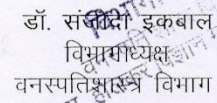 डॉ. संजीदा इकबाल
विभागाध्यक्ष
वनस्पतिशास्त्र विभाग